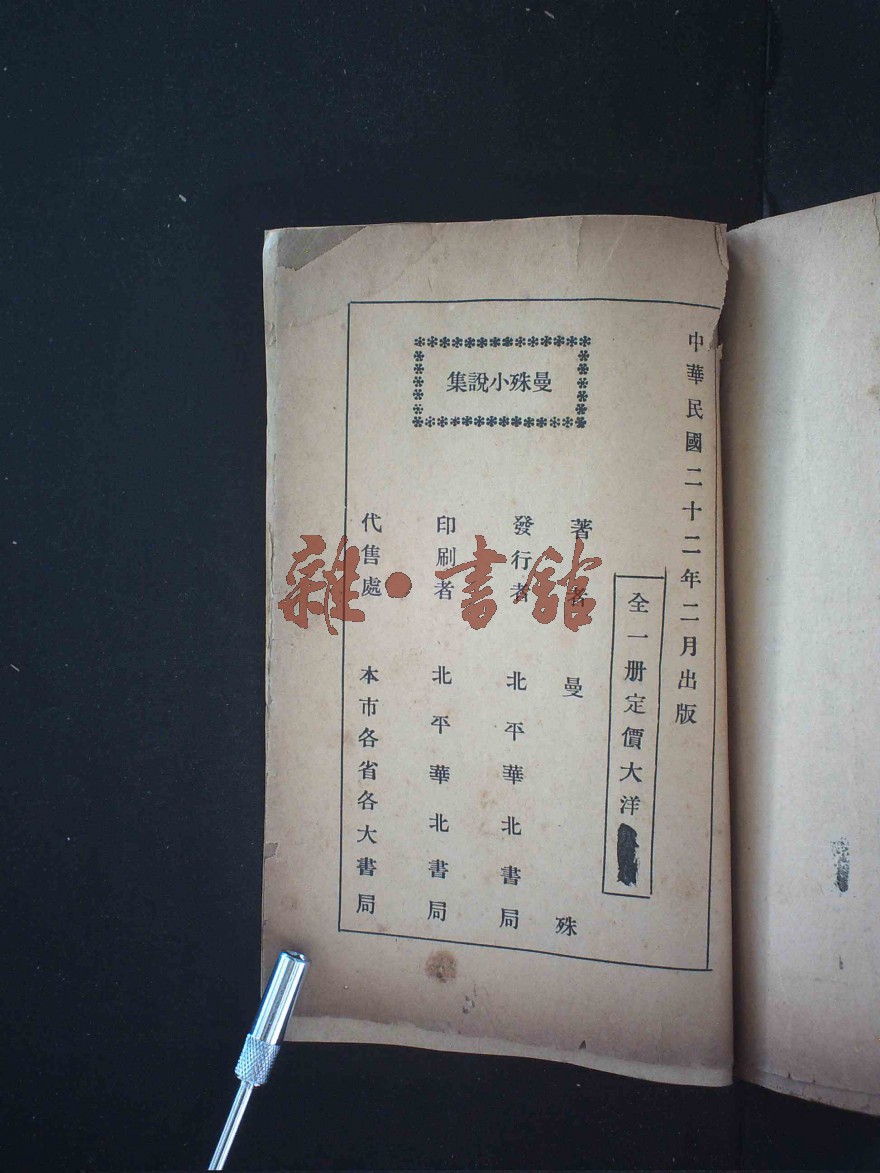 中華民國二十二年二月出版
全一册定價大洋
曼殊小說集
著者 曼殊
發行者 北平華北書局
印刷者 北平華北書局
代售處 本市各省各大書局
雜·書館